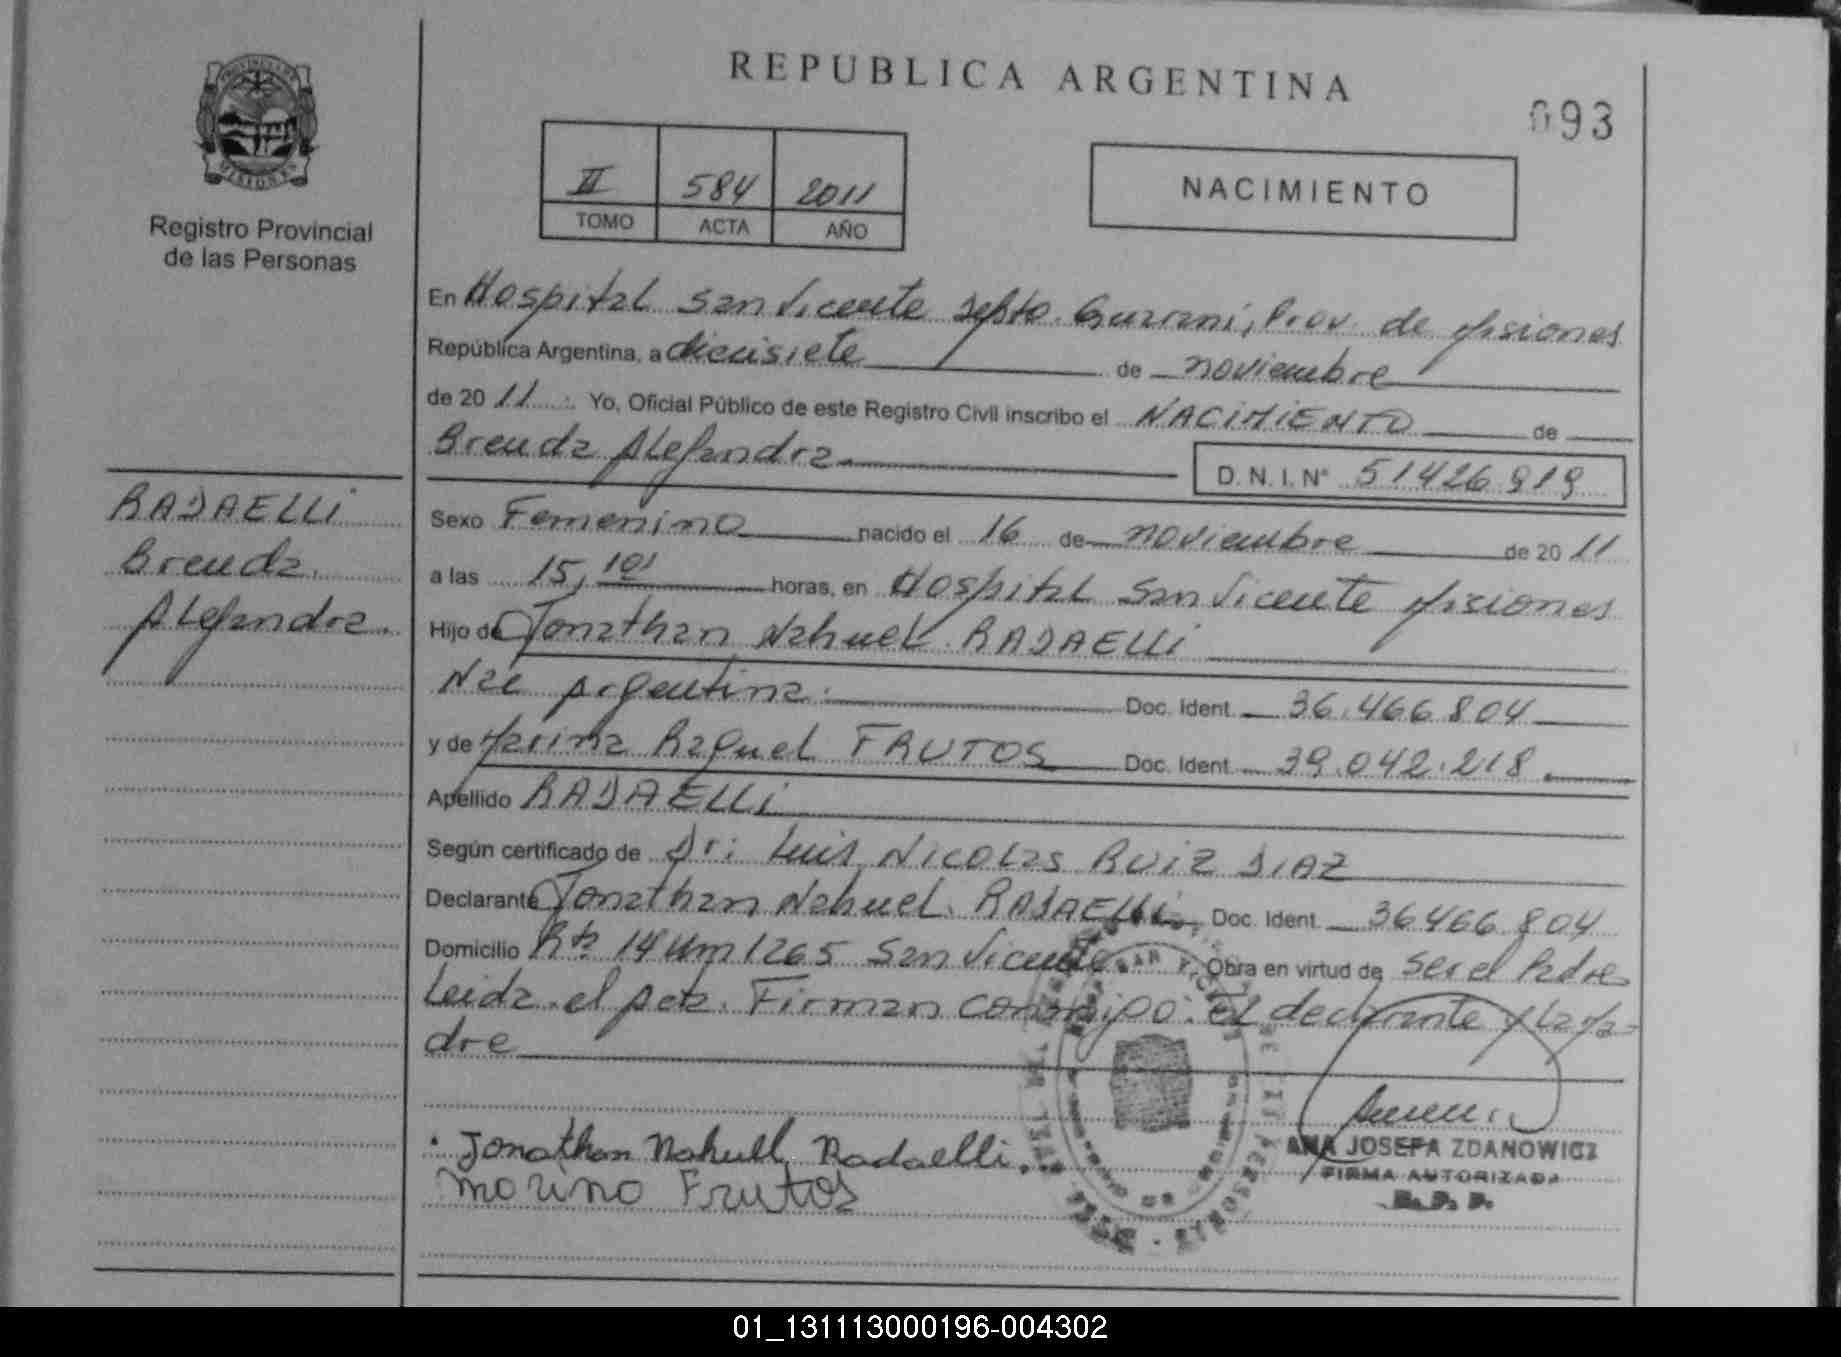 REPUBLICA ARGENTINA
093
PROVINCIA DE
MISIONES
Registro Provincial
de las Personas
II 584 2011
TOMO ACTA AÑO
NACIMIENTO
En Hospital San Vicente Depto. Guarani, Prov. de Misiones
República Argentina, a diecisiete de noviembre
de 20 11 . Yo, Oficial Público de este Registro Civil inscribo el NACIMIENTO de
Brenda Alejandra D. N. I. N° 51426919
RADAELLI
Brenda
Alejandra.
Sexo Femenino nacido el 16 de noviembre de 20 11
a las 15,10' horas, en Hospital San Vicente Misiones
Hijo de Jonathan Nahuel RADAELLI
Nac Argentina. Doc. Ident. 36.466.804
y de Marina Raquel FRUTOS Doc. Ident. 39.042.218.
Apellido RADAELLI
Según certificado de Dr: Luis Nicolas RUIZ DIAZ
Declarante Jonathan Nahuel RADAELLI Doc. Ident. 36466.804
Domicilio Rta 14 Km 1265 San Vicente Obra en virtud de ser el Padre
Leida el Acta. Firman conmigo: El declarante y la Ma-
dre
Jonathan Nahuel Radaelli.
marina Frutos
ANA JOSEFA ZDANOWICZ
FIRMA AUTORIZADA
R. P. P.
01_131113000196-004302